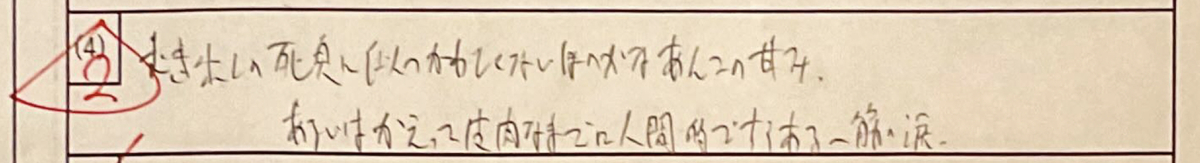 (4) 2 むき出しの死臭に似つかわしくないほのかなあんこの甘み.
あるいはかえって皮肉なまでに人間的ですらある一筋の涙.